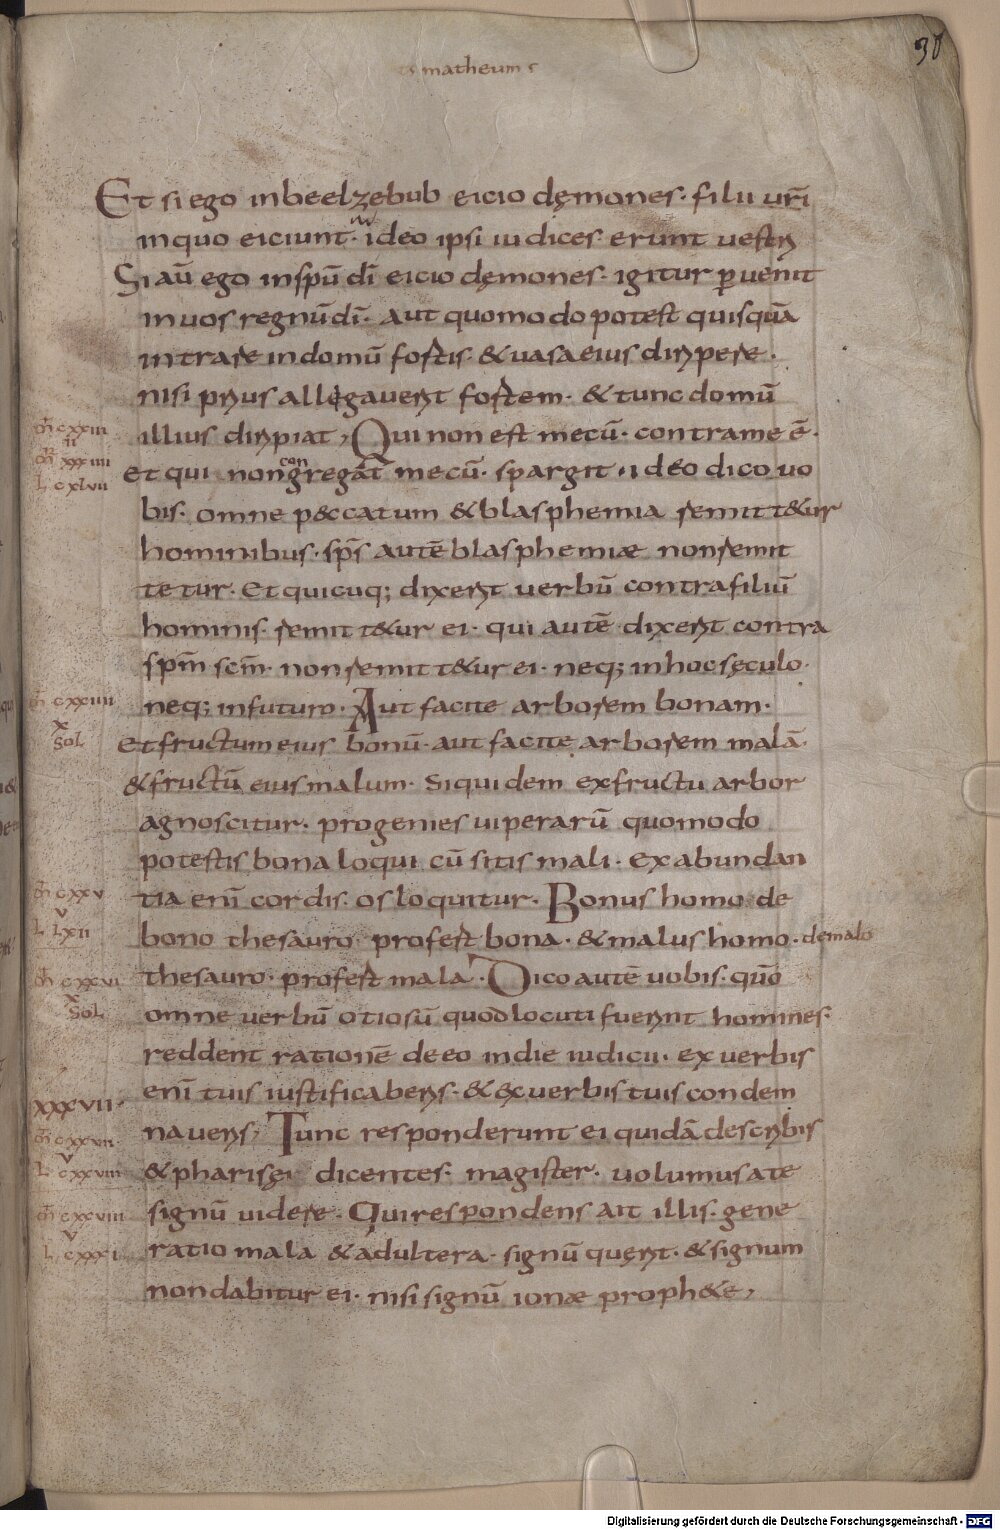 30
matheum
Et si ego inbeelzebub eicio dęmones · filii ur̄i
inquo eiciunt · ideo ipsi iudices erunt vestri
Si aū ego inspū dī eicio dęmones · igitur pervenit
in uos regnū dī · Aut quomodo potest quisquā
intrare indomū fortis · & uasa eius diripere ·
nisi prius allegaverit fortem · & tunc domū
m̄ cxxiii
illius diripiat, Qui non est mecū · contra me ē ·
ii
mr̄ xxxiiii
et qui non con gregat mecū · spargit · ideo dico uo
L cxlvii
bis · omne peccatum & blasphemia remittetur
hominibus · sps̄ autē blasphemiæ non remit
tetur · Et quicuq; dixerit verbū contra filiū
hominis · remittetur ei · qui autē dixerit contra
spm̄ scm̄ · non remittetur ei · neq; in hoc sęculo ·
m̄ cxxiiii
neq; infuturo · Aut facite arborem bonam ·
x
sol
et fructum eius bonū · aut facite arborem malā ·
& fructū eius malum · Siquidem ex fructu arbor
agnoscitur · progenies uiperarū quomodo
potestis bona loqui cū sitis mali · ex abundan
m̄ cxxv
tia enī cordis os loquitur · Bonus homo de
v
L Lxii
bono thesauro profert bona · & malus homo · demalo
m̄ cxxvi
thesauro · profert mala · Dico autē uobis · qūo
x
sol
omne verbū otiosū quod locuti fuerint homines ·
reddent rationē de eo in die iudicii · ex verbis
enī tuis iustificaberis · & ex verbis tuis condem
xxxvii ·
m̄ cxxvii
naveris, Tunc responderunt ei quidā de scribis
v
L cxxviii
& pharisęi dicentes · magister · uolumus a te
m̄ cxxviii
signū uidere · Qui respondens ait illis · gene
v
L cxxxi
ratio mala & adultera · signū querit · & signum
non dabitur ei · nisi signū ionæ prophetæ,
Digitalisierung gefördert durch die Deutsche Forschungsgemeinschaft - DFG